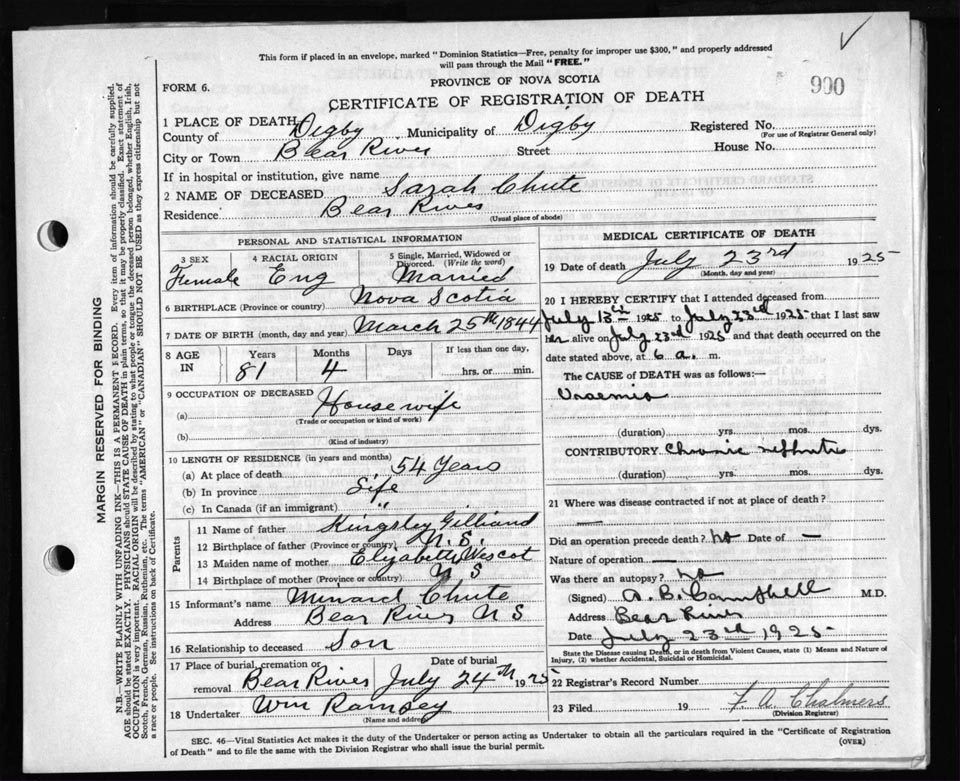 This form if placed in an envelope, marked "Dominion Statistics—Free, penalty for improper use $300," and properly addressed
will pass through the Mail "FREE."
PROVINCE OF NOVA SCOTIA
900
FORM 6.
CERTIFICATE OF REGISTRATION OF DEATH
1 PLACE OF DEATH
County of Digby Municipality of Digby Registered No.
(For use of Registrar General only)
City or Town Bear River Street House No.
If in hospital or institution, give name
2 NAME OF DECEASED Sarah Chute
Residence Bear River
(Usual place of abode)
PERSONAL AND STATISTICAL INFORMATION
3 SEX 4 RACIAL ORIGIN 5 Single, Married, Widowed or Divorced. (Write the word)
Female Eng Married
6 BIRTHPLACE (Province or country) Nova Scotia
7 DATE OF BIRTH (month, day and year) March 25th 1844
8 AGE IN Years Months Days If less than one day,
81 4 hrs. or min.
9 OCCUPATION OF DECEASED
(a) Housewife
(Trade or occupation or kind of work)
(b)
(Kind of industry)
10 LENGTH OF RESIDENCE (in years and months)
(a) At place of death 54 Years
(b) In province Life
(c) In Canada (if an immigrant) "
Parents
11 Name of father Kingsley Gilliand
12 Birthplace of father (Province or country) N.S.
13 Maiden name of mother Elizabeth Wescot
14 Birthplace of mother (Province or country) N S
15 Informant's name Minard Chute
Address Bear River N S
16 Relationship to deceased Son
17 Place of burial, cremation or removal Date of burial
Bear River July 24th 1925
18 Undertaker Wm Ramsey
(Name and address)
MEDICAL CERTIFICATE OF DEATH
19 Date of death July 23rd 1925
(Month, day and year)
20 I HEREBY CERTIFY that I attended deceased from
July 13th 1925 to July 23rd 1925 that I last saw
her alive on July 23rd 1925 and that death occurred on the
date stated above, at 6 a. m.
The CAUSE of DEATH was as follows:—
Uraemia
(duration) yrs. mos. dys.
CONTRIBUTORY Chronic nephritis
(duration) yrs. mos. dys.
21 Where was disease contracted if not at place of death?
—
Did an operation precede death? no Date of —
Nature of operation —
Was there an autopsy? no
(Signed) A. B. Campbell M.D.
Address Bear River
Date July 23rd 1925
State the Disease causing Death, or in death from Violent Causes, state (1) Means and Nature of
Injury, (2) whether Accidental, Suicidal or Homicidal.
22 Registrar's Record Number
23 Filed 19 F. A. Chalmers
(Division Registrar)
SEC. 46—Vital Statistics Act makes it the duty of the Undertaker or person acting as Undertaker to obtain all the particulars required in the "Certificate of Registration
of Death" and to file the same with the Division Registrar who shall issue the burial permit. (OVER)
MARGIN RESERVED FOR BINDING
N.B.—WRITE PLAINLY WITH UNFADING INK—THIS IS A PERMANENT RECORD. Every item of information should be carefully supplied.
AGE should be stated EXACTLY. PHYSICIANS should STATE CAUSE OF DEATH in plain terms, so that it may be properly classified. Exact statement of
OCCUPATION is very important. RACIAL ORIGIN will be described by stating to what people or tongue the deceased person belonged, whether English, Irish,
Scotch, French, German, Russian, Ruthenian, etc. The terms "AMERICAN" or "CANADIAN" SHOULD NOT BE USED as they express citizenship but not
a race or people. See instructions on back of Certificate.